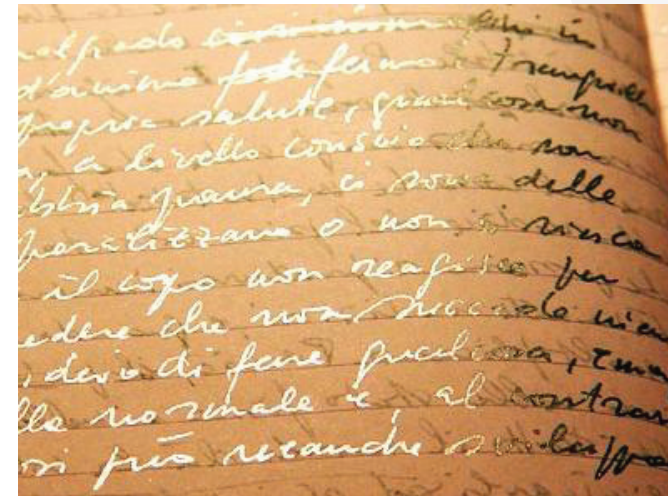 d'animo fermo i tranquilla
propria salute, qualcosa non
a livello conscio che non
paura, ci sono delle
paralizzano o non si riesca
il corpo non reagisce per
che non succede nien
di fare qualcosa, ema
normale e, al contrar
si può neanche sviluppa